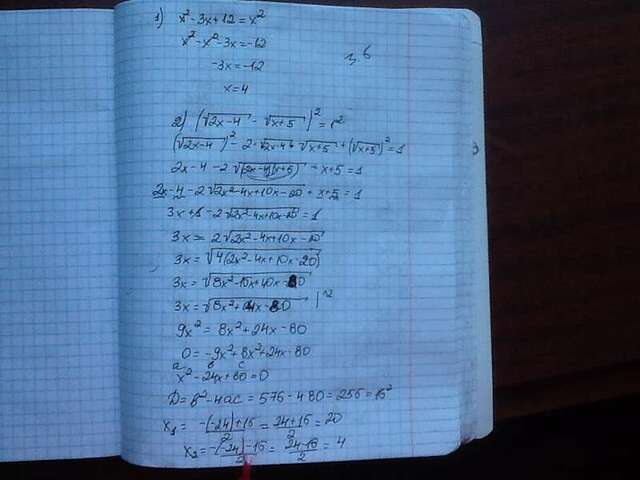 1) x² - 3x + 12 = x²
x² - x² - 3x = -12
-3x = -12
x = 4
2) (√2x-4 - √x+5)² = 1²
(√2x-4)² - 2·√2x-4 √x+5 + (√x+5)² = 1
2x - 4 - 2√(2x-4)(x+5) - x + 5 = 1
2x - 4 - 2√2x²-4x+10x-20 + x + 5 = 1
3x + 1 - 2√2x²-4x+10x-20 = 1
3x = 2√2x²-4x+10x-20
3x = √4(2x²-4x+10x-20)
3x = √8x²-16x+40x-80
3x = √8x²+24x-80 |²
9x² = 8x² + 24x - 80
0 = -9x² + 8x² + 24x - 80
a b c
x² - 24x + 80 = 0
D = b² - 4ac = 576 - 480 = 256 = 16²
x₁ = -(-24)+16/2 = 24+16/2 = 20
x₂ = -(-24)-16/2 = 24-16/2 = 4